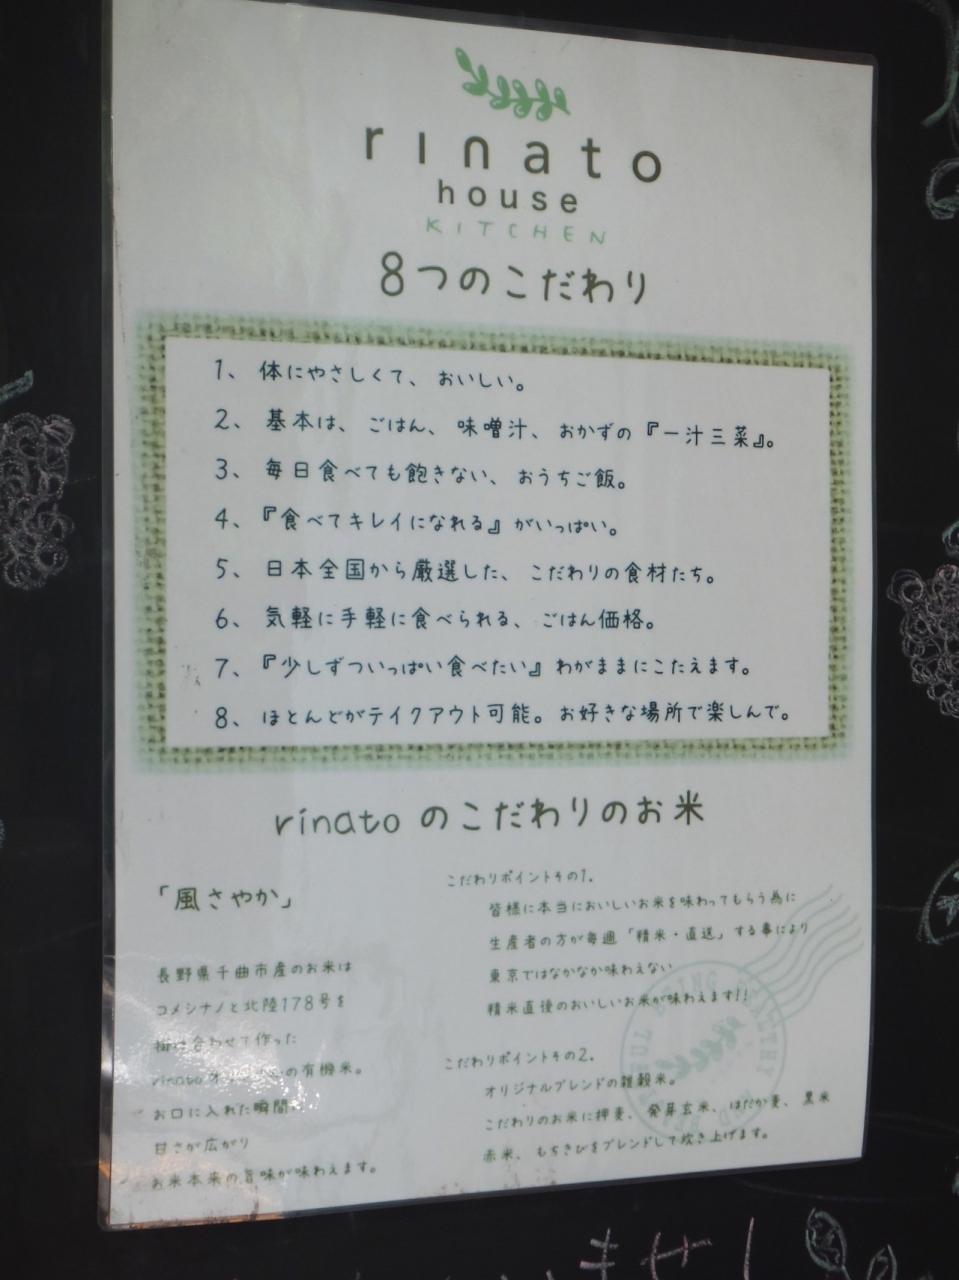 rinato
house
KITCHEN
8つのこだわり
1、体にやさしくて、おいしい。
2、基本は、ごはん、味噌汁、おかずの『一汁三菜』。
3、毎日食べても飽きない、おうちご飯。
4、『食べてキレイになれる』がいっぱい。
5、日本全国から厳選した、こだわりの食材たち。
6、気軽に手軽に食べられる、ごはん価格。
7、『少しずついっぱい食べたい』わがままにこたえます。
8、ほとんどがテイクアウト可能。お好きな場所で楽しんで。
rinatoのこだわりのお米
「風さやか」
長野県千曲市産のお米は
コメシナノと北陸178号を
掛け合わせて作った
rinatoオリジナルの有機米。
お口に入れた瞬間
甘さが広がり
お米本来の旨味が味わえます。
こだわりポイントその1.
皆様に本当においしいお米を味わってもらう為に
生産者の方が毎週「精米・直送」する事により
東京ではなかなか味わえない
精米直後のおいしいお米が味わえます!!
こだわりポイントその2.
オリジナルブレンドの雑穀米。
こだわりのお米に押麦、発芽玄米、はだか麦、黒米
赤米、もちきびをブレンドして炊き上げます。
ませ